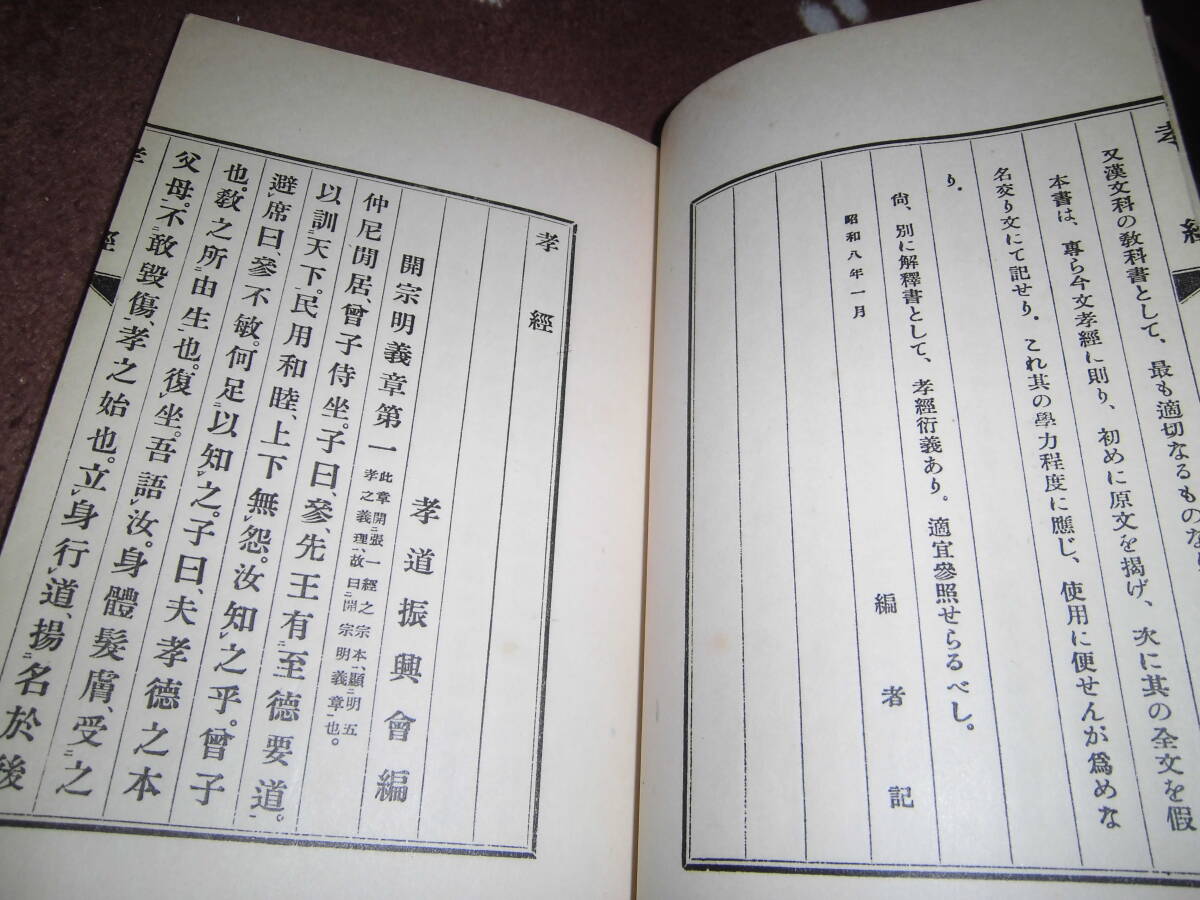 孝經
又漢文科の敎科書として、最も適切なるものな
本書は、專ら今文孝經に則り、初めに原文を揭げ、次に其の全文を假
名交り文にて記せり。これ其の學力程度に應じ、使用に便せんが爲めな
り。
尙、別に解釋書として、孝經衍義あり。適宜參照せらるべし。
昭和八年一月
編者記
孝經
孝道振興會編
開宗明義章第一 此章開張一經之宗本、顯明五
孝之義理、故曰開宗明義章也。
仲尼閒居、曾子侍坐。子曰、參、先王有至德要道。
以訓天下。民用和睦、上下無怨。汝知之乎。曾子
避席曰、參不敏。何足以知之。子曰、夫孝德之本
也。敎之所由生也。復坐。吾語汝。身體髮膚、受之
父母。不敢毀傷、孝之始也。立身行道、揚名於後
孝經